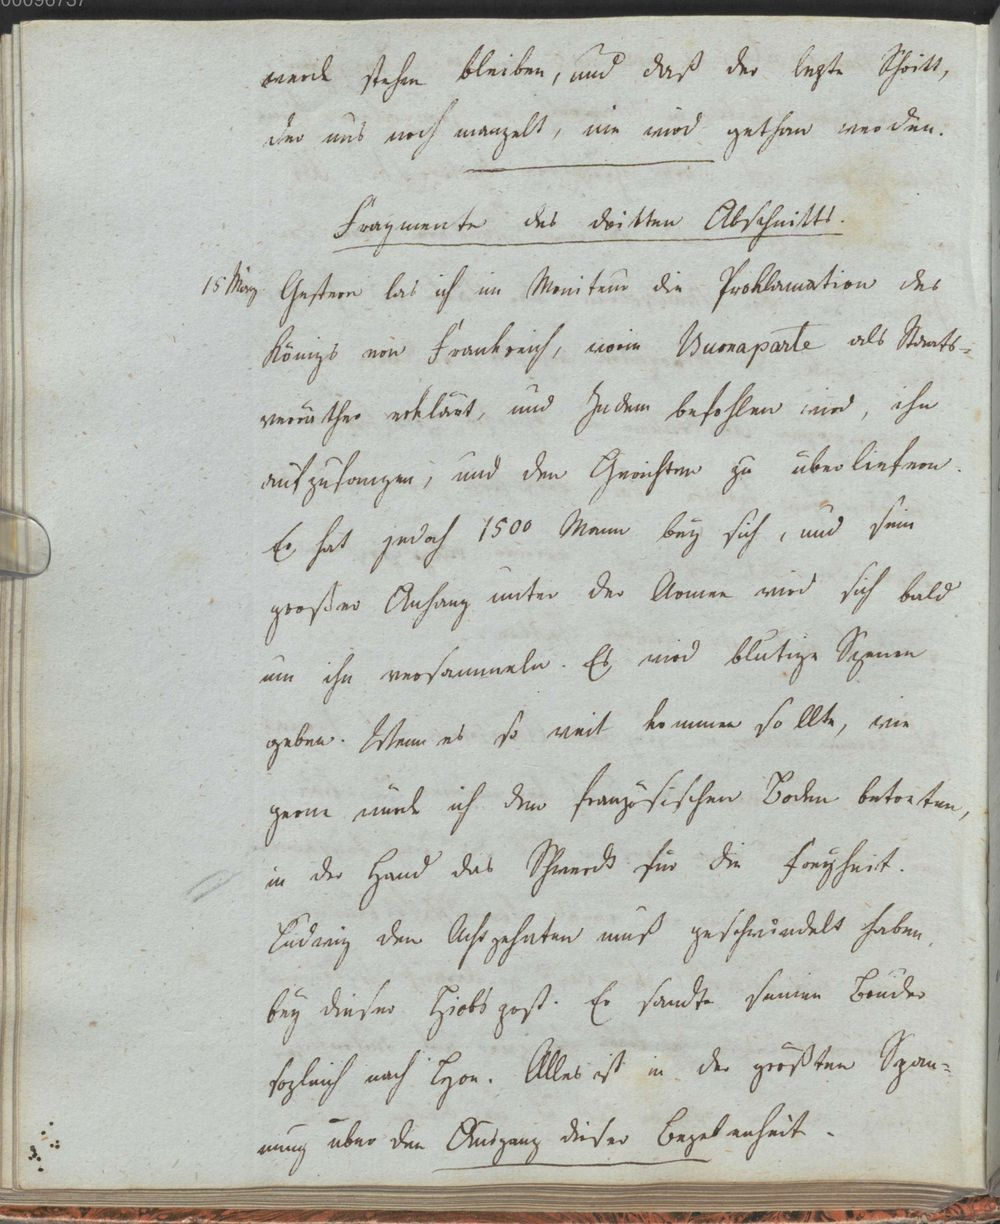 00096737
werde stehen bleiben, und daß der lezte Schritt,
der uns noch mangelt, nie wird gethan werden.
Fragmente des dritten Abschnitts.
15 März Gestern las ich im Moniteur die Proklamation des
Königs von Frankreich, worin Buonaparte als Staats=
verräther erklärt, und Jedem befohlen wird, ihn
aufzufangen, und den Gerichten zu überliefern.
Er hat jedoch 1500 Mann bey sich, und sein
großer Anhang unter der Armee wird sich bald
um ihn versammeln. Es wird blutige Szenen
geben. Wenn es so weit kommen sollte, wie
gerne würde ich den französischen Boden betreten,
in der Hand das Schwerdt für die Freyheit.
Ludwig den Achtzehnten muß geschwindelt haben,
bey dieser Hiobspost. Er sandte seinen Bruder
sogleich nach Lyon. Alles ist in der größten Span=
nung über den Ausgang dieser Begebenheit.